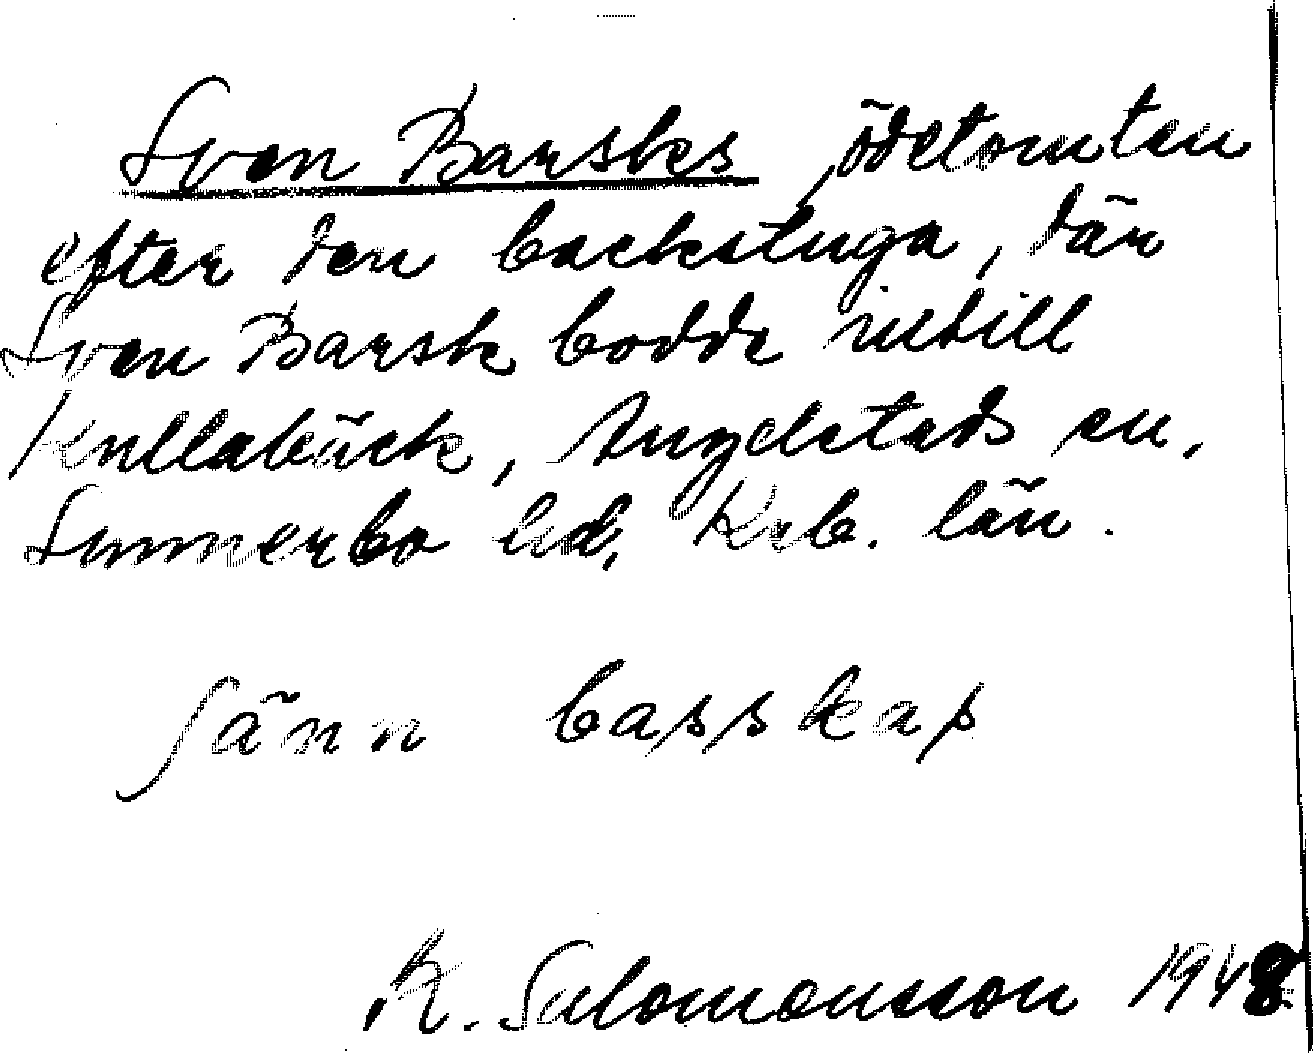 Sven Barsks, ödetomten
efter den backstuga, där
Sven Barsk bodde intill
Kullabäck, Angelstads sn,
Sunnerbo hd, Krb. län.
sänn basskas
K. Salomonsson 1948